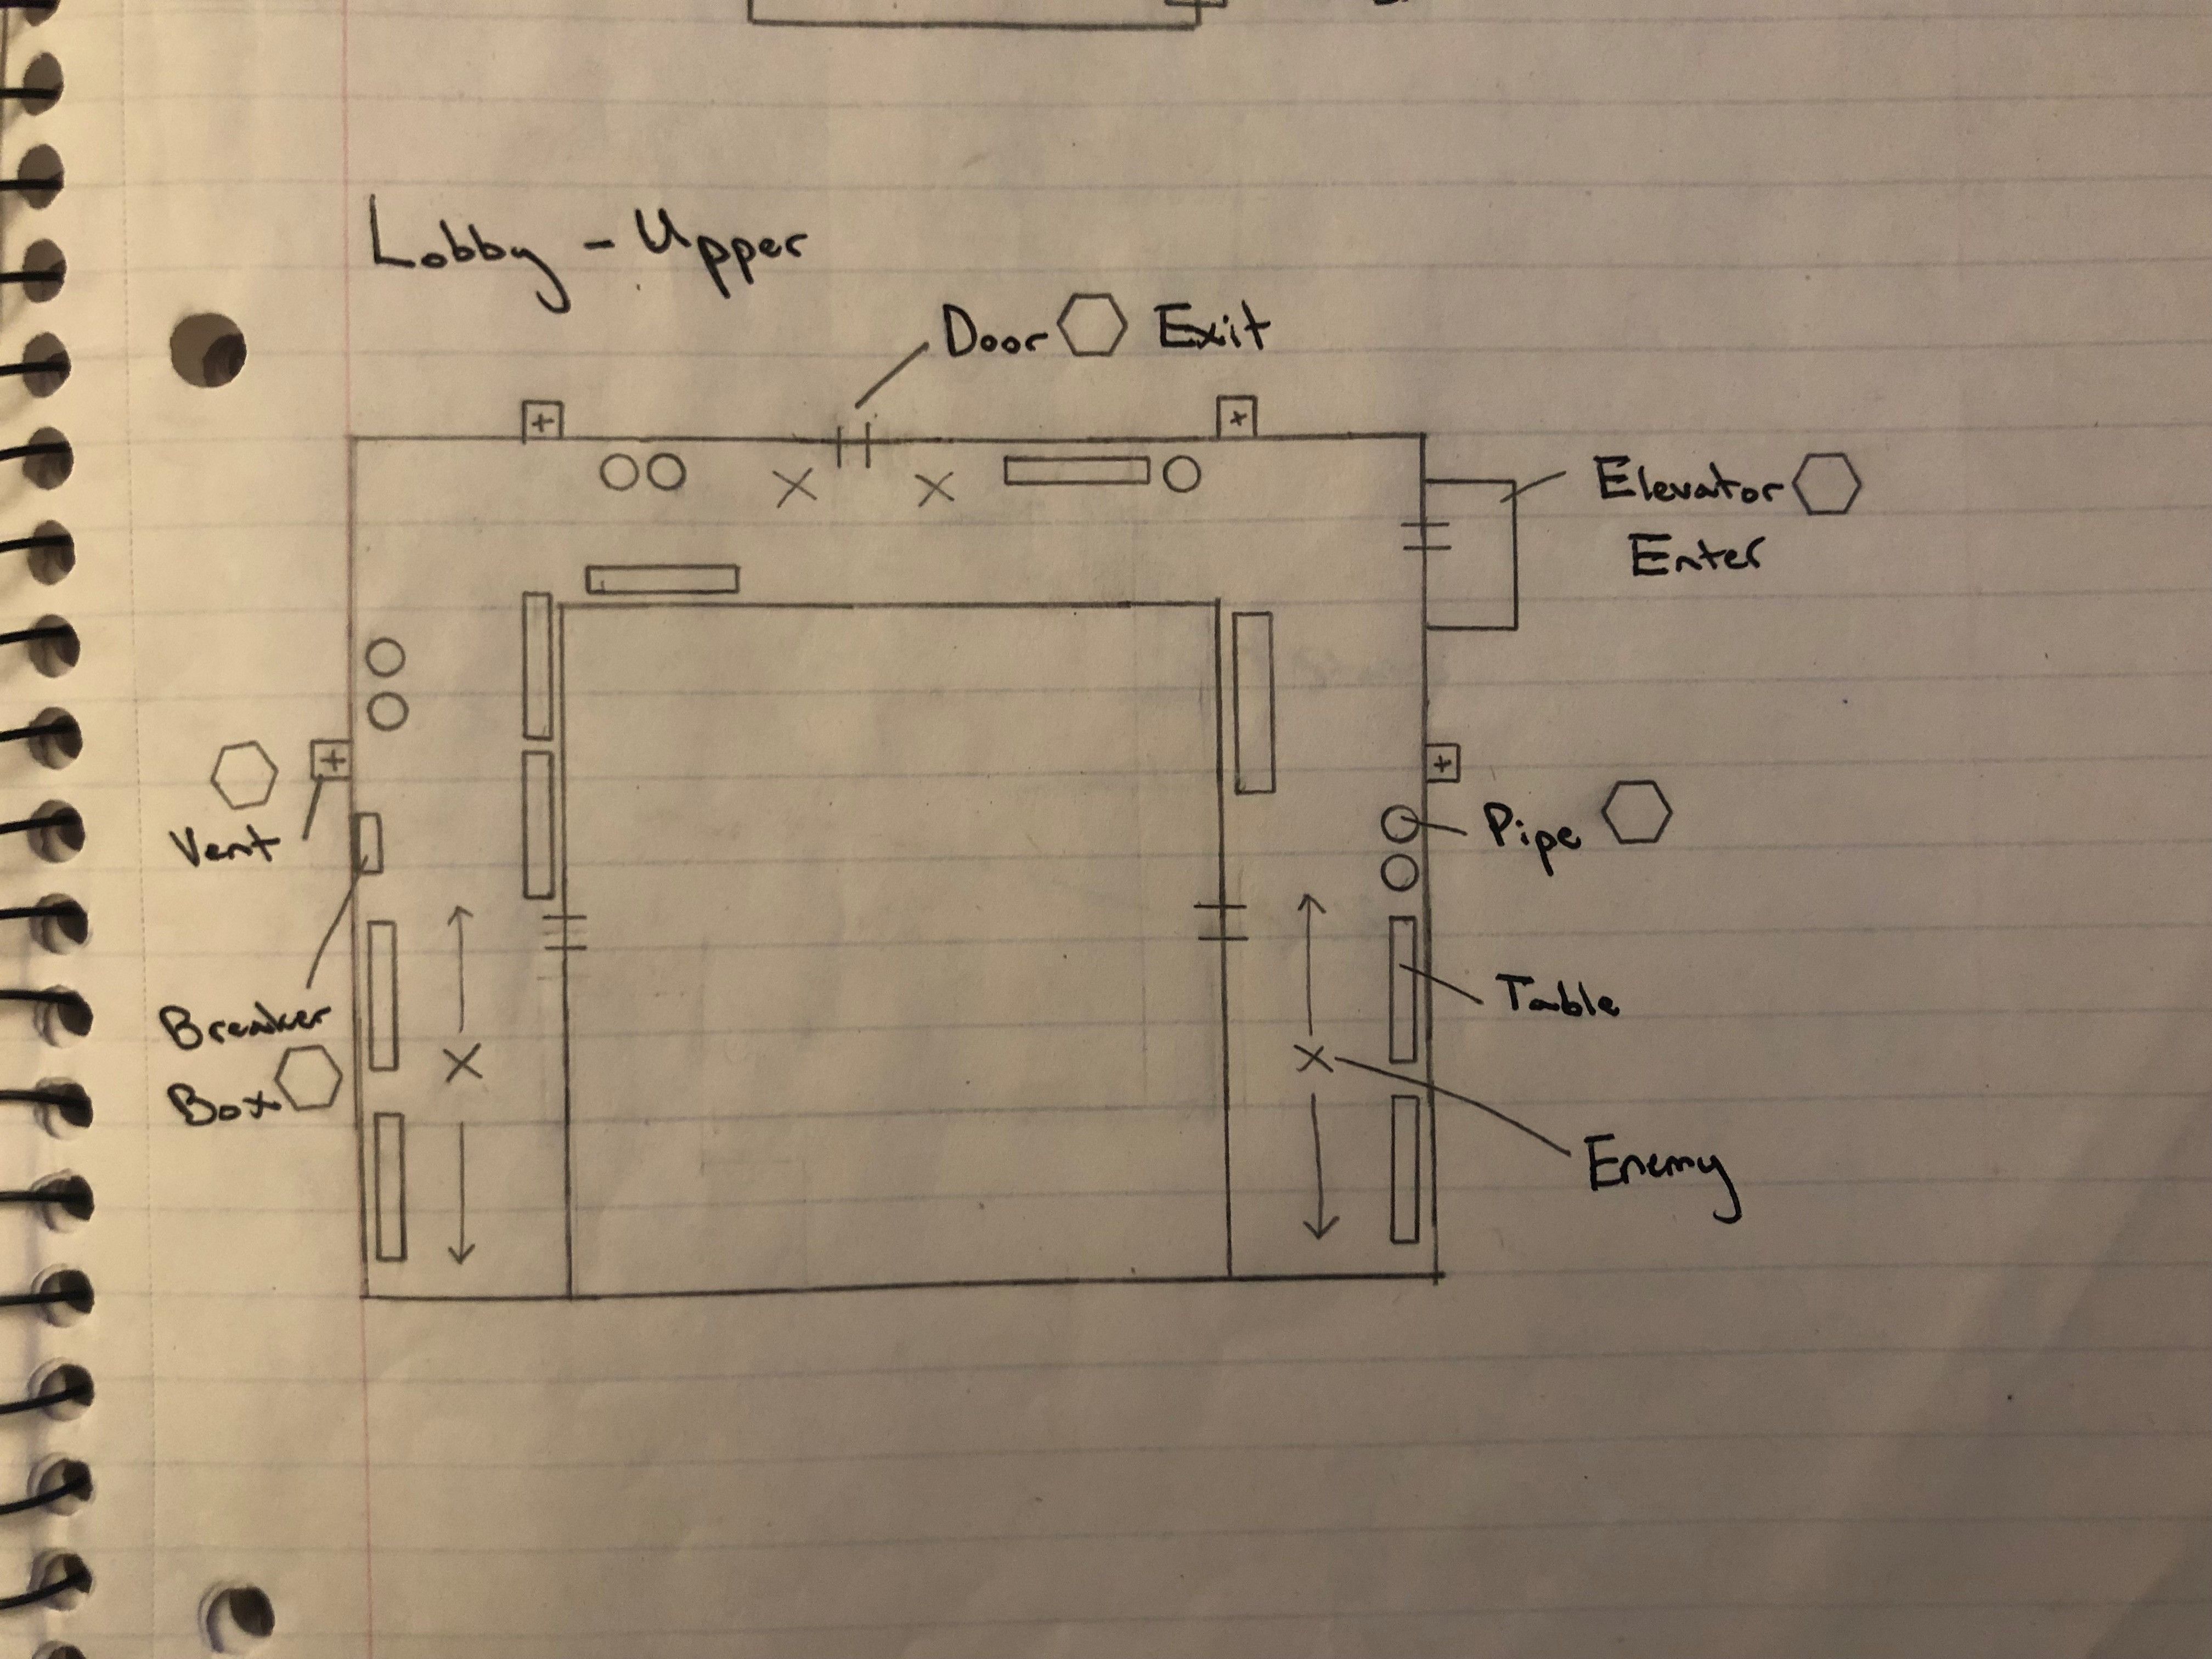 Lobby - Upper
Door Exit
Elevator
Enter
Vent
Pipe
Breaker
Box
Table
Enemy